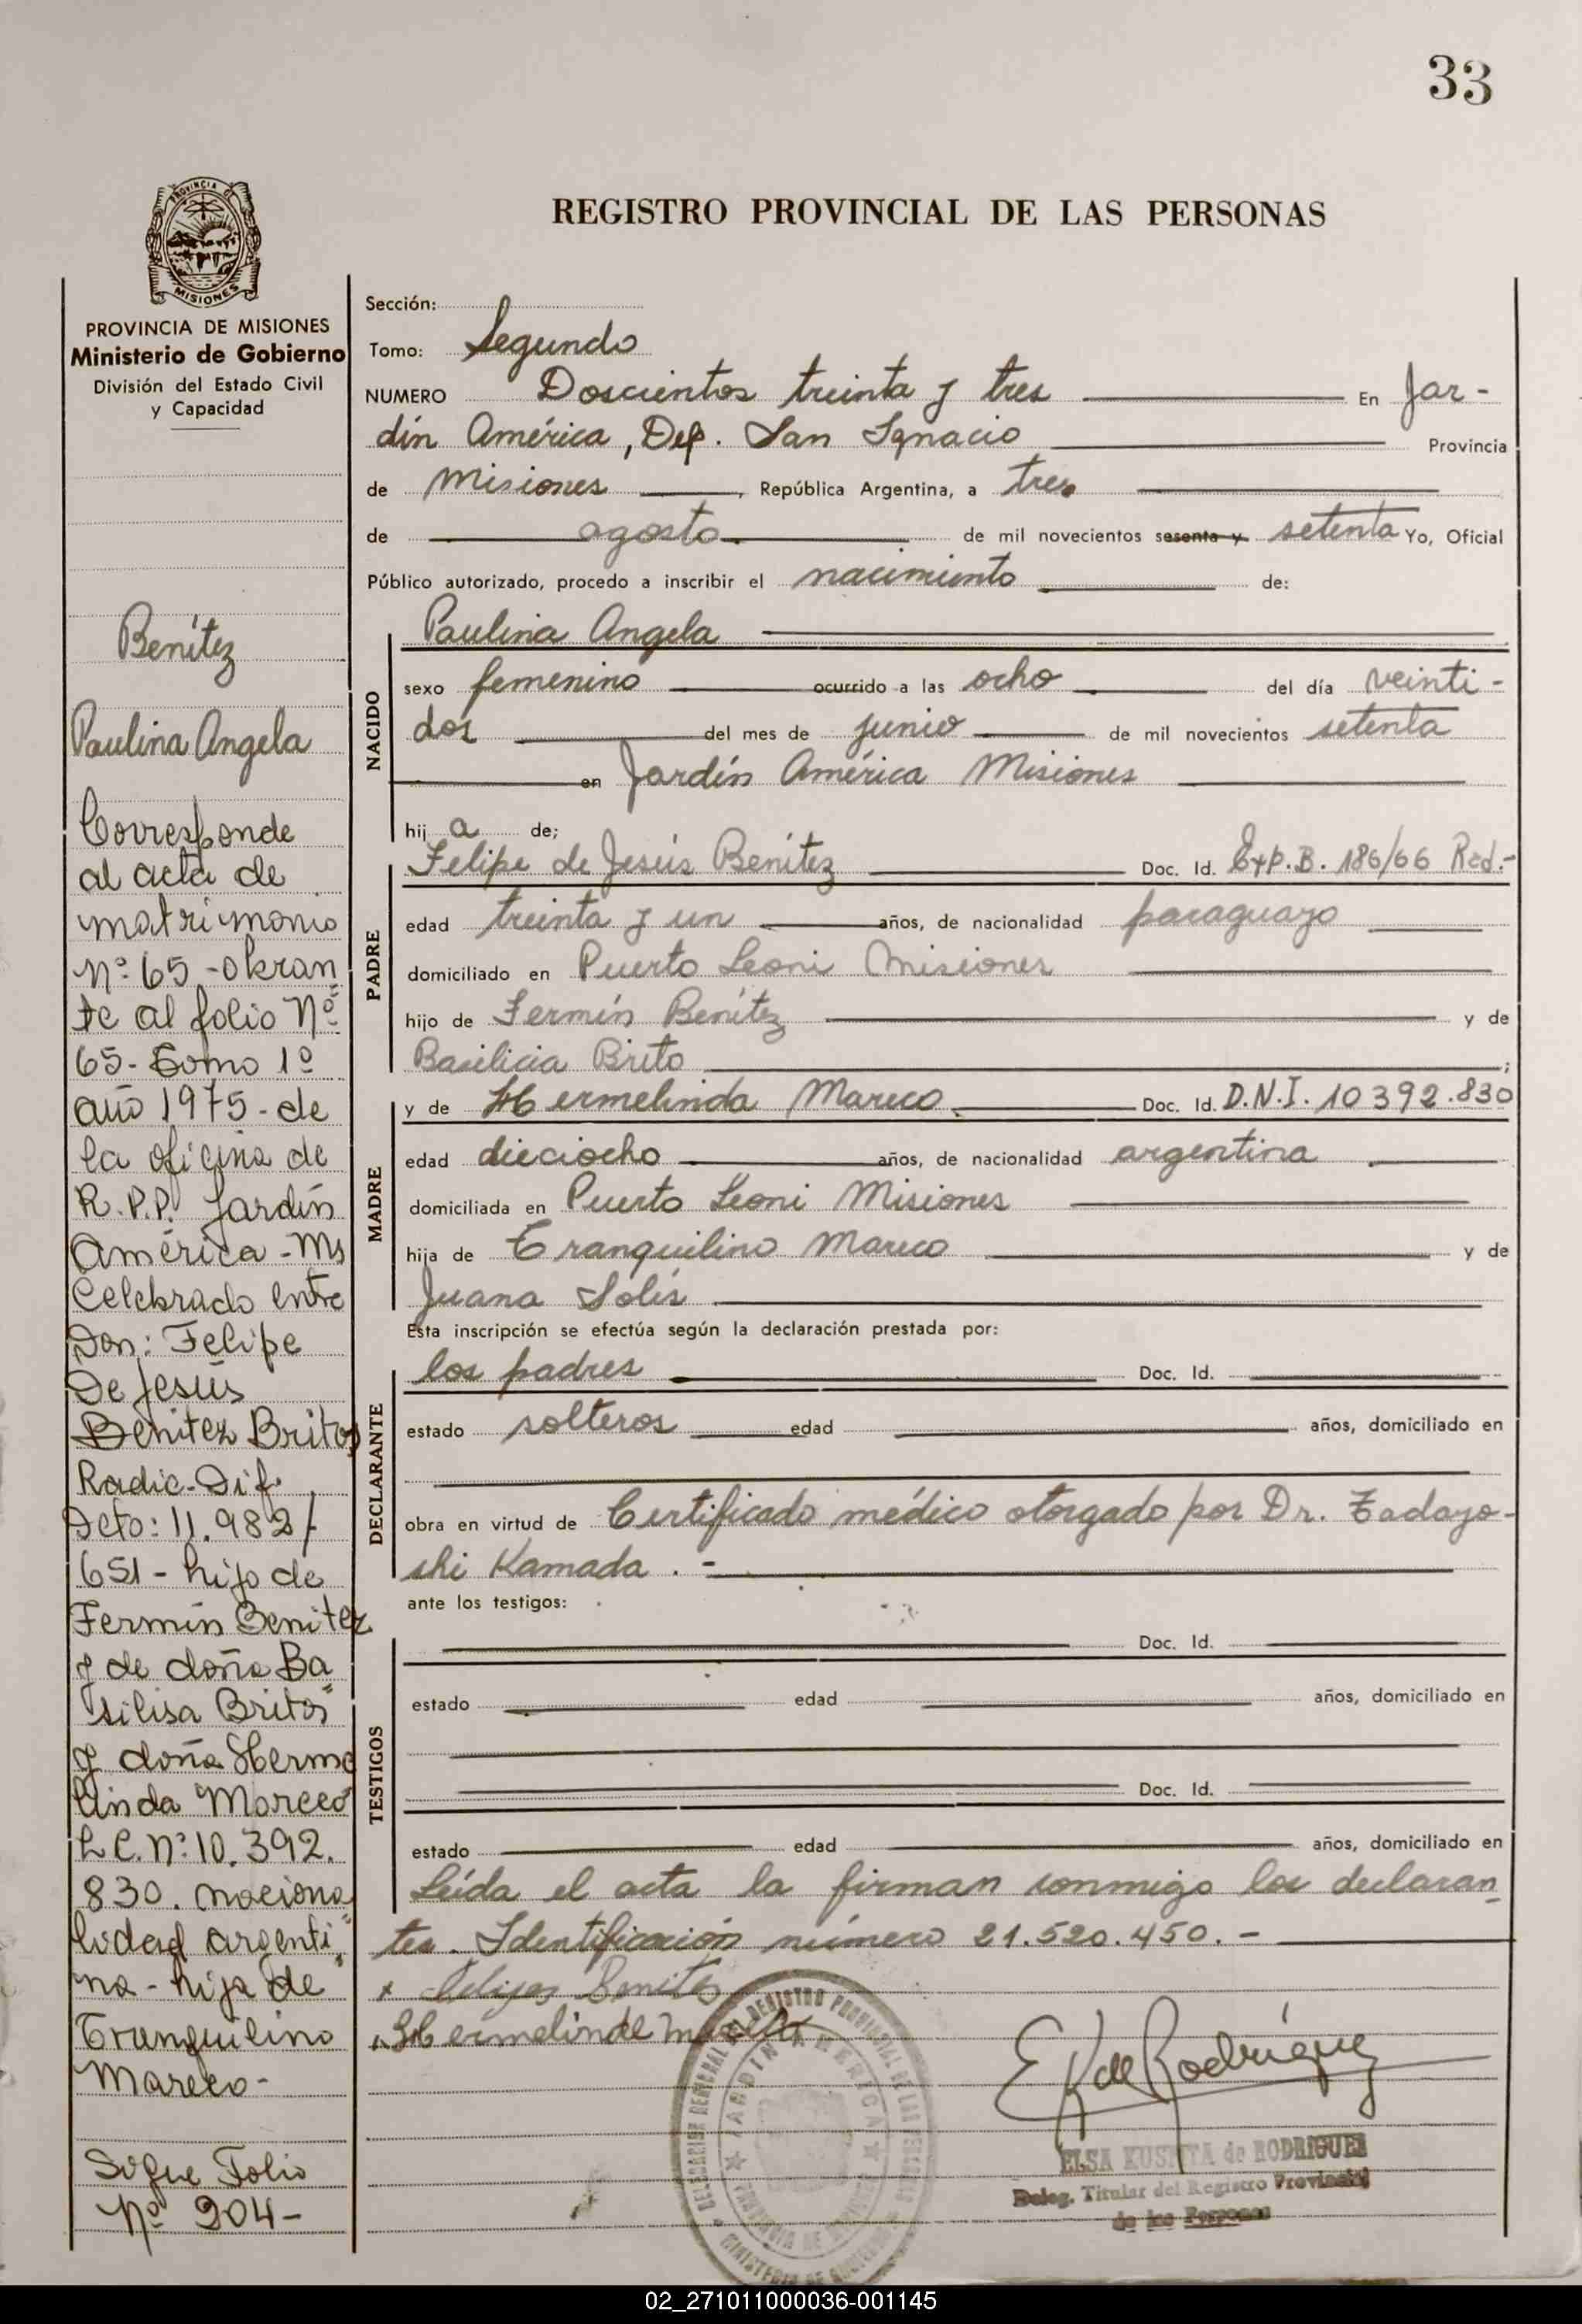 33
REGISTRO PROVINCIAL DE LAS PERSONAS
PROVINCIA DE MISIONES
Ministerio de Gobierno
División del Estado Civil
y Capacidad
Benítez
Paulina Angela
Corresponde
al acta de
matrimonio
Nº 65 - obran
te al folio Nº
65 - Tomo 1º
año 1975 - de
la oficina de
R.P.P. Jardín
América - Ms
Celebrado entre
Don: Felipe
De Jesús
Benitez Britos
Radic. Dif.
Dcto: 11.982/
651 - hijo de
Fermín Benitez
y de doña Ba
silisa Britos
y doña Herme
linda Mareco
L.C. Nº 10.392.
830. naciona
lidad argenti
na - hija de
Tranquilino
Mareco -
Sigue Folio
Nº 204 -
Sección:
Tomo: Segundo
NUMERO Doscientos treinta y tres En Jar -
dín América, Dep. San Ignacio Provincia
de Misiones, República Argentina, a tres
de agosto de mil novecientos sesenta y setenta Yo, Oficial
Público autorizado, procedo a inscribir el nacimiento de:
NACIDO
Paulina Angela
sexo femenino ocurrido a las ocho del día veinti -
dos del mes de junio de mil novecientos setenta
en Jardín América Misiones
hij a de;
PADRE
Felipe de Jesús Benítez Doc. Id. Exp. B. 186/66 Rad.-
edad treinta y un años, de nacionalidad paraguayo
domiciliado en Puerto Leoni Misiones
hijo de Fermín Benítez y de
Basilicia Brito ;
MADRE
y de Hermelinda Mareco Doc. Id. D.N.I. 10392.830
edad dieciocho años, de nacionalidad argentina
domiciliada en Puerto Leoni Misiones
hija de Tranquilino Mareco y de
Juana Solís
Esta inscripción se efectúa según la declaración prestada por:
DECLARANTE
los padres Doc. Id.
estado solteros edad años, domiciliado en
obra en virtud de Certificado médico otorgado por Dr. Tadayo -
shi Kamada . -
ante los testigos:
TESTIGOS
Doc. Id.
estado edad años, domiciliado en
Doc. Id.
estado edad años, domiciliado en
Leída el acta la firman conmigo los declaran
tes. Identificación número 21.520.450. -
x Benites
x Hermelinde
E K de Rodríguez
ELSA KUSNTA de RODRIGUEZ
Deleg. Titular del Registro Provincial
de las Personas
JARDIN AMERICA
02_271011000036-001145